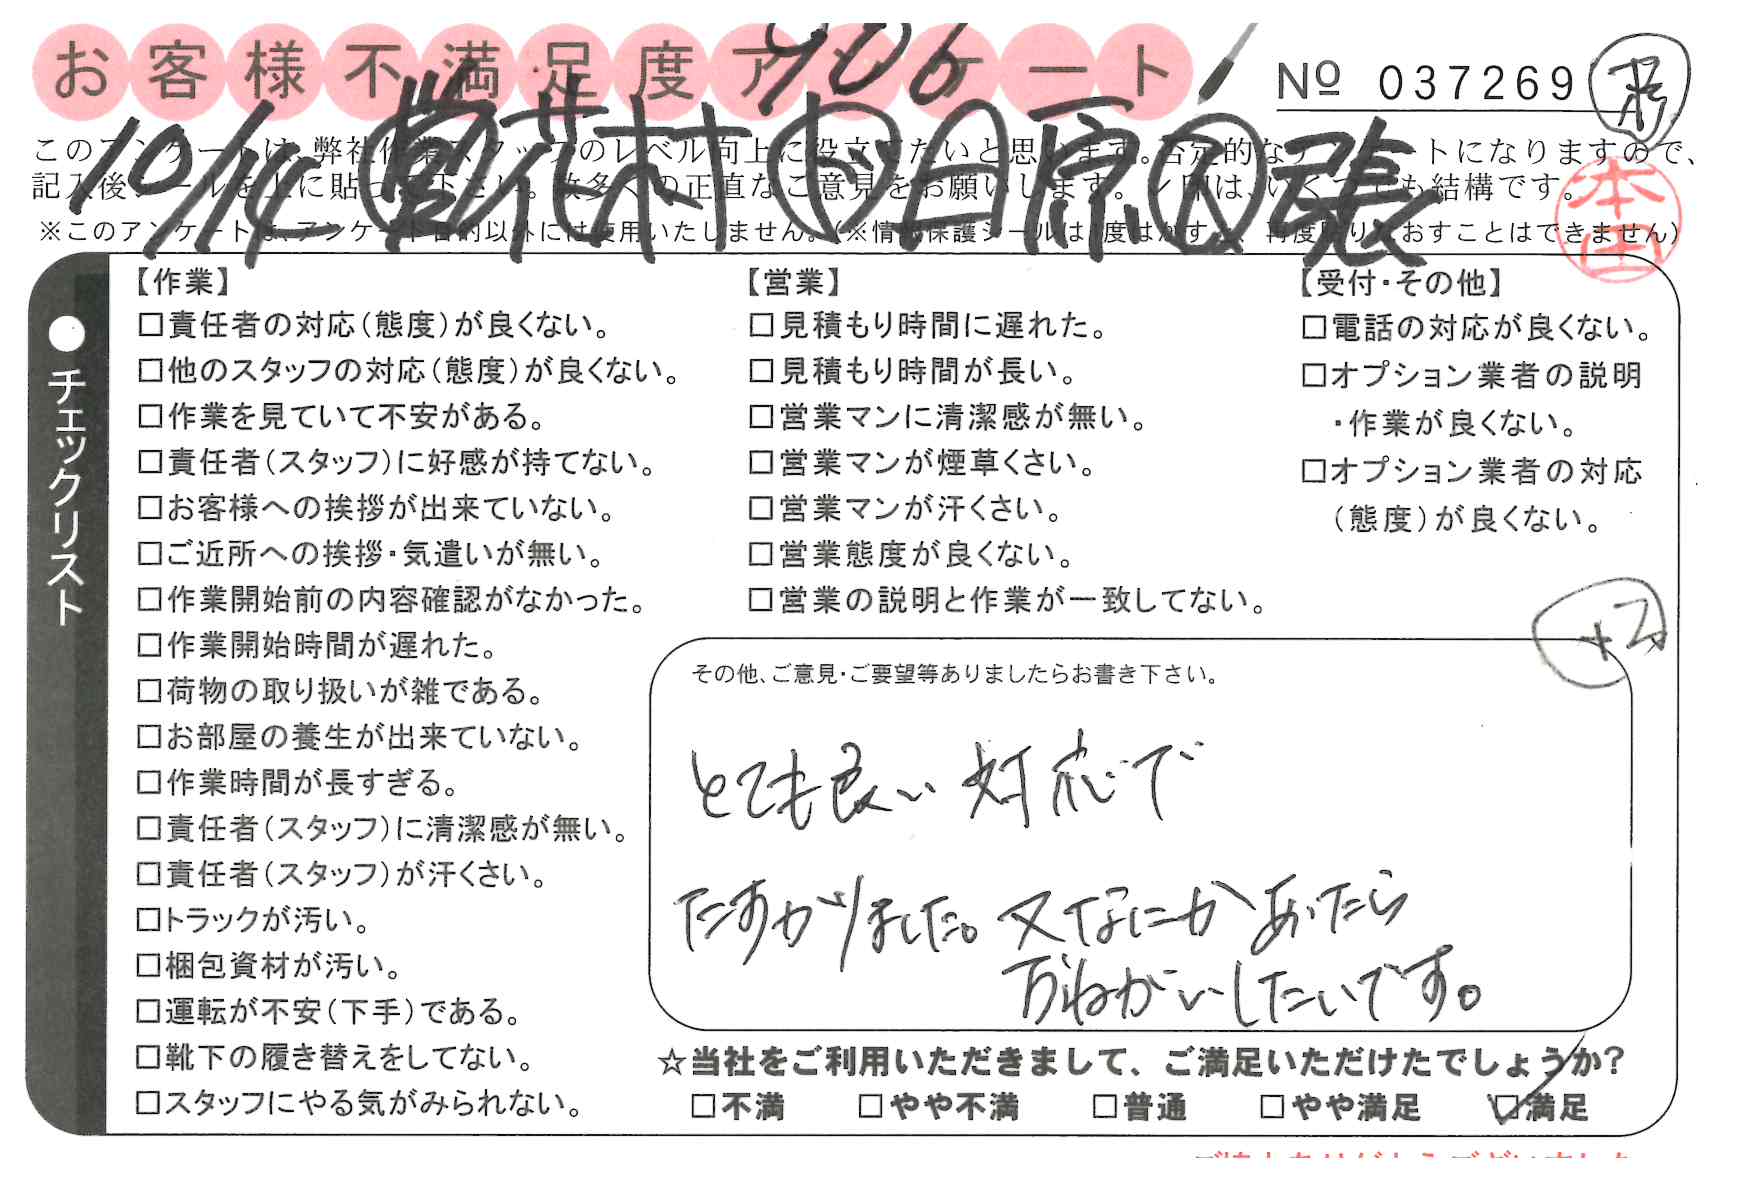 お客様不満足度アンケート
706
№ 037269
10/14 営 花村 作 日原 ス 張
このアンケートは、弊社作業スタッフのレベル向上に役立てたいと思います。否定的なアンケートになりますので、
記入後シールを上に貼って下さい。数多くの正直なご意見をお願いします。レ印は、いくつでも結構です。
※このアンケートは、アンケート目的以外には使用いたしません。(※情報保護シールは1度はがすと、再度貼りなおすことはできません)
本田
●チェックリスト
【作業】
□責任者の対応(態度)が良くない。
□他のスタッフの対応(態度)が良くない。
□作業を見ていて不安がある。
□責任者(スタッフ)に好感が持てない。
□お客様への挨拶が出来ていない。
□ご近所への挨拶・気遣いが無い。
□作業開始前の内容確認がなかった。
□作業開始時間が遅れた。
□荷物の取り扱いが雑である。
□お部屋の養生が出来ていない。
□作業時間が長すぎる。
□責任者(スタッフ)に清潔感が無い。
□責任者(スタッフ)が汗くさい。
□トラックが汚い。
□梱包資材が汚い。
□運転が不安(下手)である。
□靴下の履き替えをしてない。
□スタッフにやる気がみられない。
【営業】
□見積もり時間に遅れた。
□見積もり時間が長い。
□営業マンに清潔感が無い。
□営業マンが煙草くさい。
□営業マンが汗くさい。
□営業態度が良くない。
□営業の説明と作業が一致してない。
【受付・その他】
□電話の対応が良くない。
□オプション業者の説明
・作業が良くない。
□オプション業者の対応
(態度)が良くない。
+2
その他、ご意見・ご要望等ありましたらお書き下さい。
とても良い対応で
たすかりました。又なにかあったら
おねがいしたいです。
☆当社をご利用いただきまして、ご満足いただけたでしょうか?
□不満 □やや不満 □普通 □やや満足 ☑満足